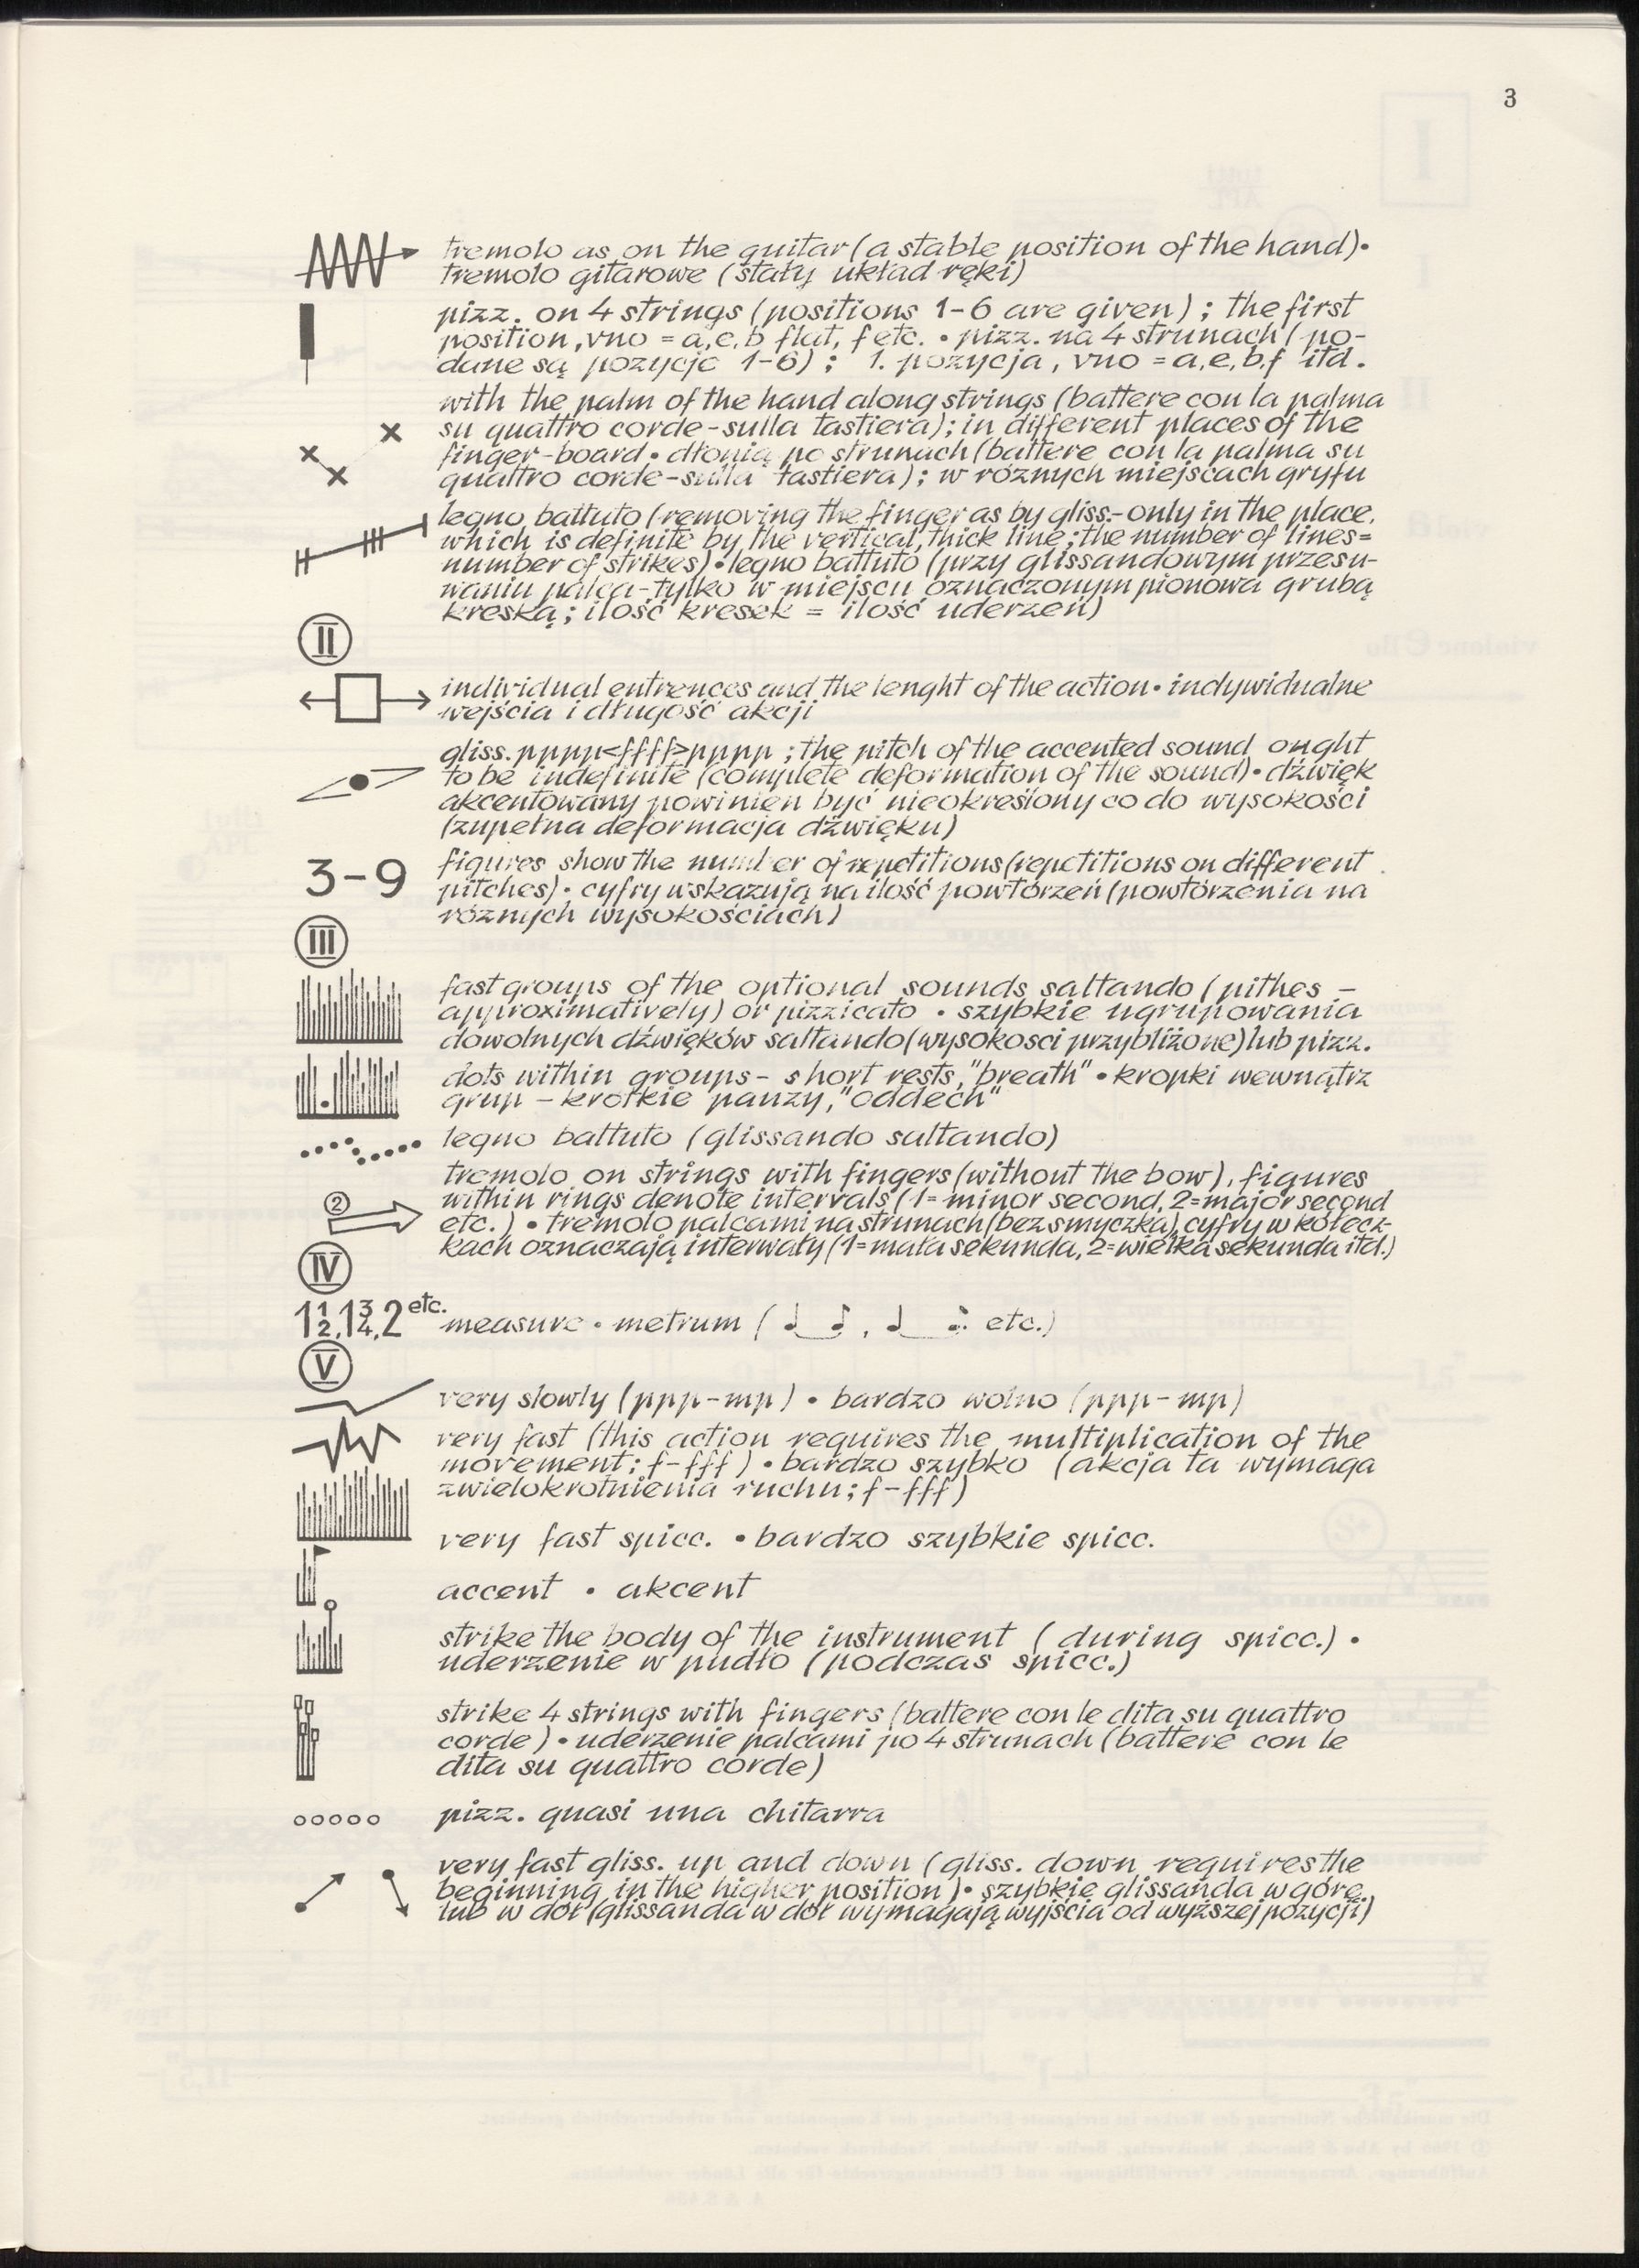 3
tremolo as on the guitar (a stable position of the hand)•
tremolo gitarowe (stały układ ręki)
pizz. on 4 strings (positions 1-6 are given) ; the first
position, vno = a,e,b flat, f etc. • pizz. na 4 strunach (po-
dane są pozycje 1-6) ; 1. pozycja, vno = a,e,b,f itd.
with the palm of the hand along strings (battere con la palma
su quattro corde-sulla tastiera); in different places of the
finger-board • dłonią po strunach (battere con la palma su
quattro corde-sulla tastiera); w różnych miejscach gryfu
legno battuto (removing the finger as by gliss.-only in the place,
which is definite by the vertical, thick line; the number of lines=
number of strikes) • legno battuto (przy glissandowym przesu-
waniu palca-tylko w miejscu oznaczonym pionowa grubą
kreską; ilość kresek = ilość uderzeń)
II
individual entrences and the lenght of the action • indywidualne
wejścia i długość akcji
gliss. pppp<ffff>pppp ; the pitch of the accented sound ought
to be indefinite (complete deformation of the sound) • dźwięk
akcentowany powinien być nieokreślony co do wysokości
(zupełna deformacja dźwięku)
3-9 figures show the number of repetitions (repetitions on different
pitches) • cyfry wskazują na ilość powtórzeń (powtórzenia na
różnych wysokościach)
III
fast groups of the optional sounds saltando (pithes -
approximatively) or pizzicato • szybkie ugrupowania
dowolnych dźwięków saltando (wysokosci przybliżone) lub pizz.
dots within groups- short rests, "breath" • kropki wewnątrz
grup - krótkie pauzy, "oddech"
legno battuto (glissando saltando)
tremolo on strings with fingers (without the bow), figures
2 within rings denote intervals (1= minor second, 2=major second
etc.) • tremolo palcami na strunach (bez smyczka), cyfry w kółecz-
kach oznaczają interwały (1=mała sekunda, 2=wielka sekunda itd.)
IV
1 1/2, 1 3/4, 2 etc. measure • metrum ( ♩ ♪ , ♩ ♪. etc.)
V
very slowly (ppp-mp) • bardzo wolno (ppp-mp)
very fast (this action requires the multiplication of the
movement; f-fff) • bardzo szybko (akcja ta wymaga
zwielokrotnienia ruchu; f-fff)
very fast spicc. • bardzo szybkie spicc.
accent • akcent
strike the body of the instrument (during spicc.) •
uderzenie w pudło (podczas spicc.)
strike 4 strings with fingers (battere con le dita su quattro
corde) • uderzenie palcami po 4 strunach (battere con le
dita su quattro corde)
pizz. quasi una chitarra
very fast gliss. up and down (gliss. down requires the
beginning in the higher position) • szybkie glissanda w górę
lub w dół (glissanda w dół wymagają wyjścia od wyższej pozycji)